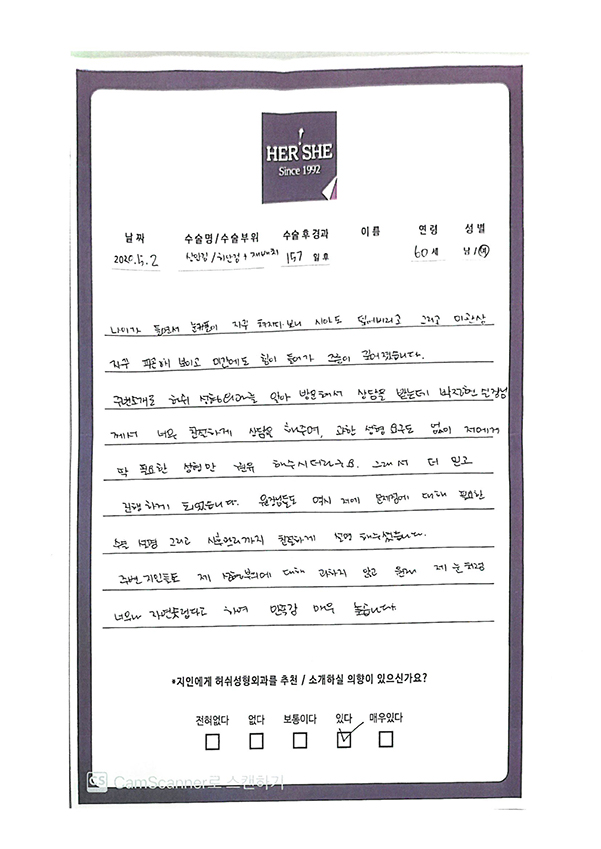 HER'SHE
Since 1992
날짜 수술명/수술부위 수술후경과 이름 연령 성별
2020.5.2 상안검/하안검 + 재배치 157 일 후 60 세 남/여
나이가 들면서 눈꺼풀이 자꾸 처지다 보니 시야도 좁아지고 그리고 미관상
자꾸 피곤해 보이고 미간에도 힘이 들어가 주름이 깊어졌습니다.
주변소개로 허쉬 성형외과를 알아 방문해서 상담을 받는데 원장님
께서 너무 친절하게 상담을 해주며, 과한 성형 요구도 없이 저에게
딱 필요한 성형만 권유 해주시더라구요. 그래서 더 믿고
진행하게 되었습니다. 원장님들도 역시 저에 문제점에 대해 필요한
수술 설명 그리고 사후관리까지 친절하게 설명 해주셨습니다.
주변 지인들도 제 성형부위에 대해 과하지 않고 원래 제 눈처럼
너무나 자연스럽다고 하여 만족감 매우 높습니다
*지인에게 허쉬성형외과를 추천 / 소개하실 의향이 있으신가요?
전혀없다 없다 보통이다 있다 매우있다
CS CamScanner로 스캔하기